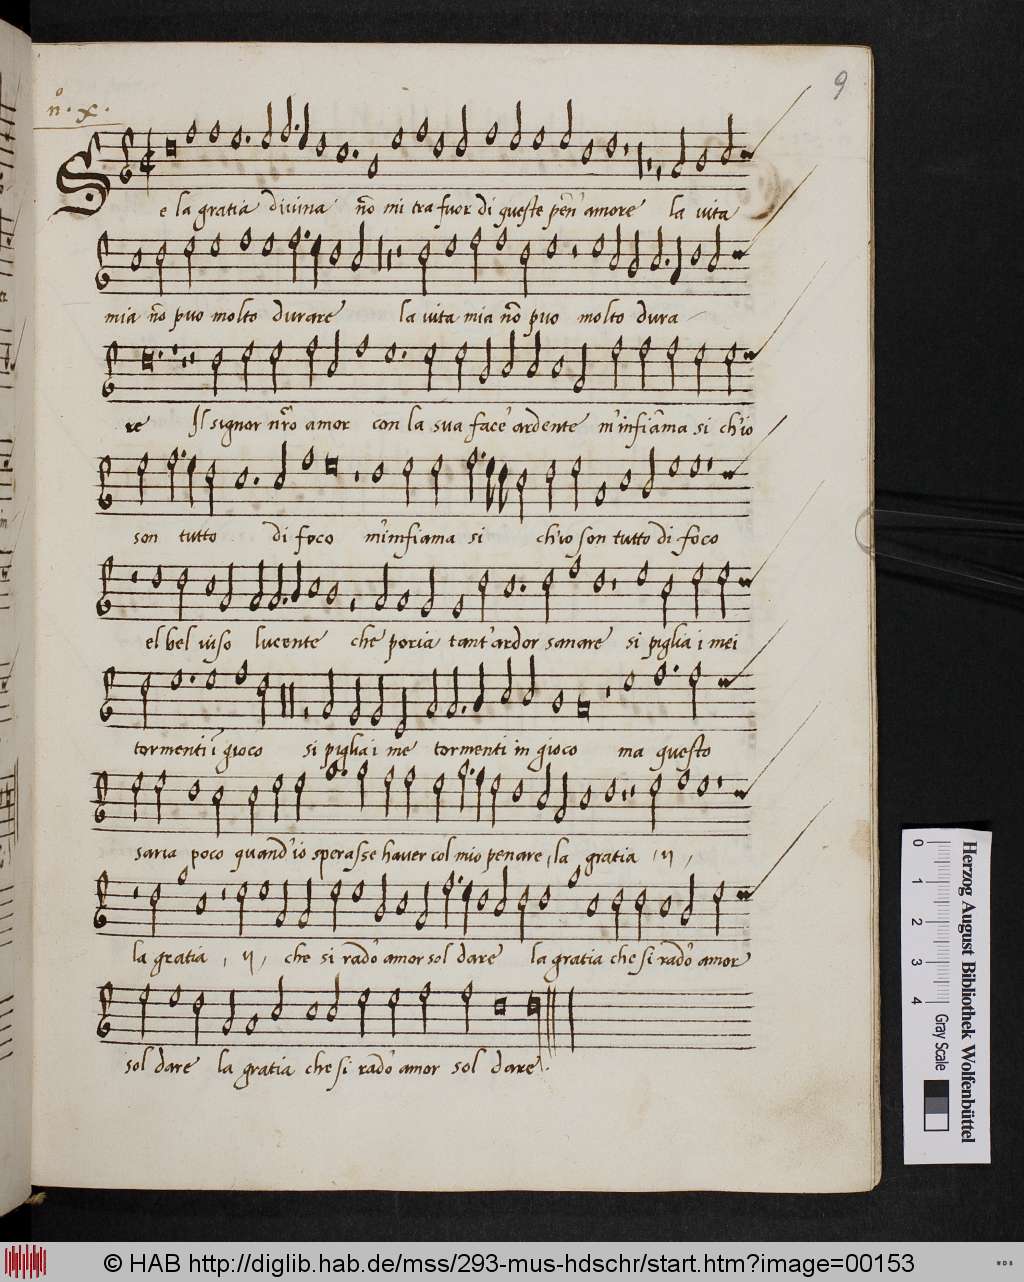 9
n.º x.
Se la gratia diuina nõ mi tra fuor di queste pẽn' amore la uita
mia nõ puo molto durare la uita mia nõ puo molto dura
re Il signor nr̃o amor con la sua face' ardente m'infiãma si ch'io
son tutto di foco m'infiama si ch'io son tutto di foco
el bel uiso lucente che poria tant'ardor sanare si piglia i mei
tormenti ĩ gioco si piglia i me tormenti in gioco ma questo
saria poco quand'io sperasse hauer col mio penare, la gratia , ij ,
la gratia , ij , che si rado' amor sol dare la gratia che si rado' amor
sol dare la gratia che si rado' amor sol dare.
0 1 2 3 4
Gray Scale
Herzog August Bibliothek Wolfenbüttel
© HAB http://diglib.hab.de/mss/293-mus-hdschr/start.htm?image=00153
WDB